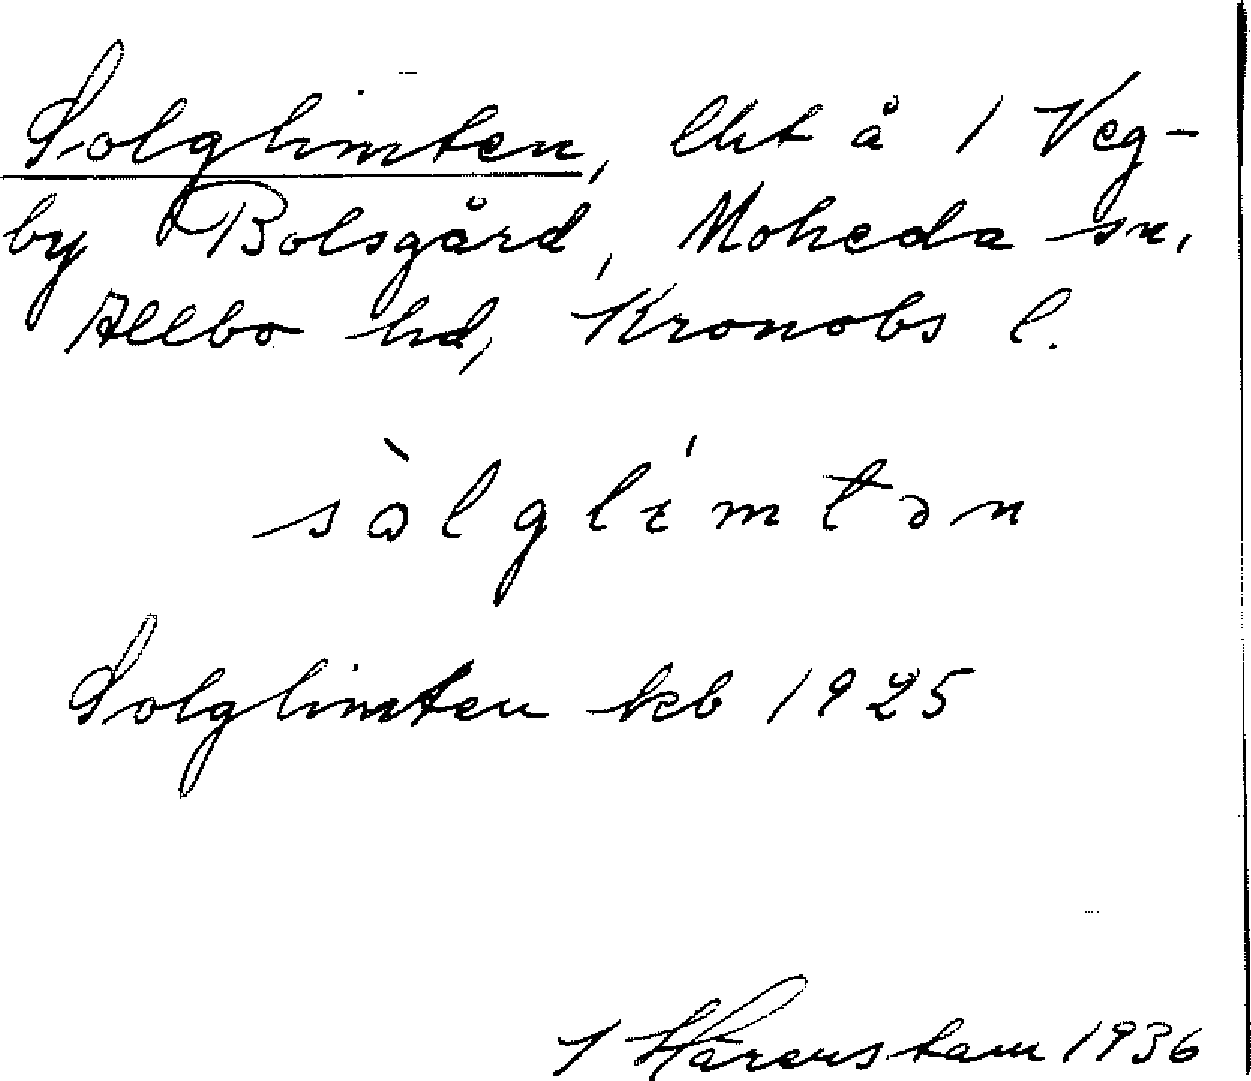 Solglimten, lht å 1 Veg-
by Bolsgård, Moheda sn,
Allbo hd, Kronobs l.
sòlglímtən
Solglimten kb 1925
Hårenstam 1936